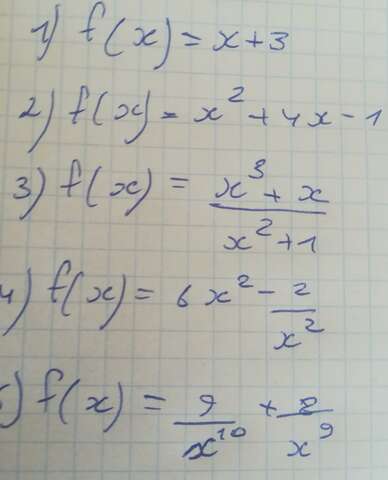 1) f(x) = x + 3
2) f(x) = x² + 4x - 1
3) f(x) = (x³ + x)/(x² + 1)
4) f(x) = 6x² - 2/x²
5) f(x) = 9/x¹⁰ + 8/x⁹